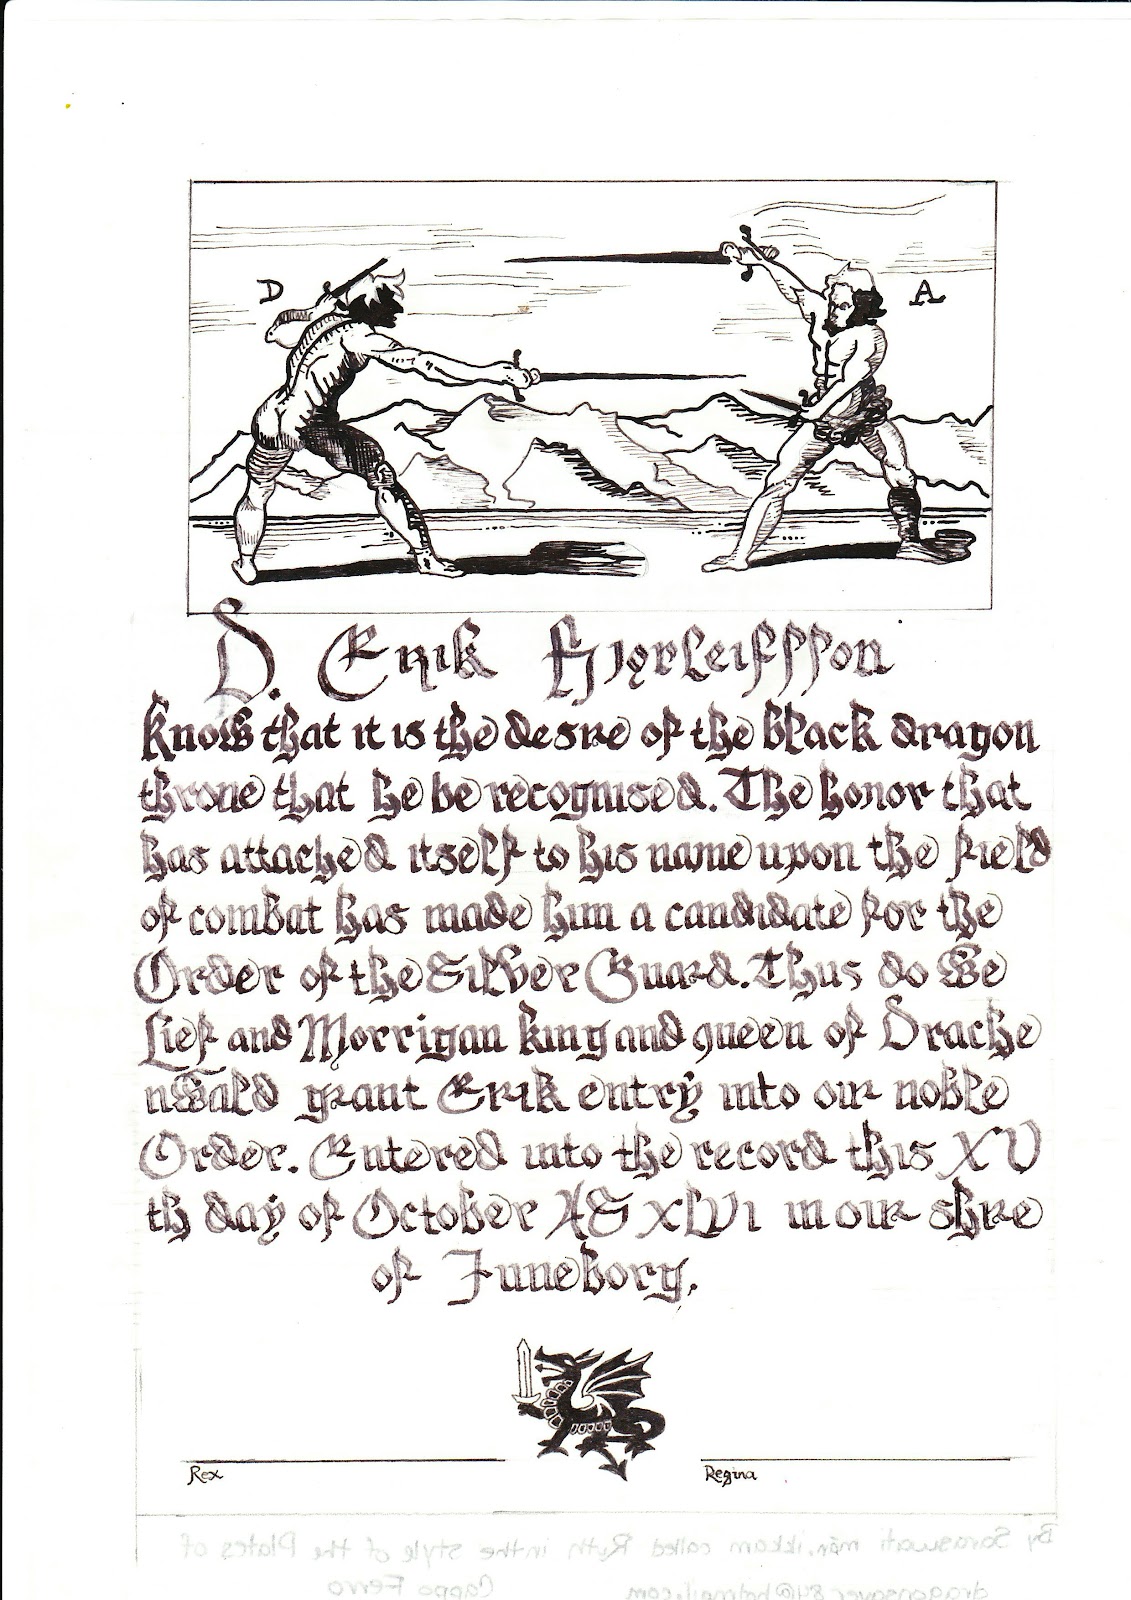 D
A
D. Erik Hjorleifsson
Know that it is the desire of the black dragon
throne that he be recognised. The honor that
has attached itself to his name upon the field
of combat has made him a candidate for the
Order of the Silver Guard. Thus do We
Lief and Morrigan king and queen of Drache
nwald grant Erik entry into our noble
Order. Entered into the record this XV
th day of October AS XLVI in our shire
of Juneborg.
Rex
Regina
By Saraswati called Ruth in the style of the Plates of
Cappo Ferro